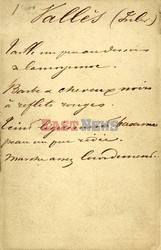 Vallès (Jules)
Taille un peu au dessus
de la moyenne.
Barbe & cheveux noirs
à reflets rouges.
Teint légèrement basané
peau un peu ridée.
Marche assez lourdement.
EAST NEWS